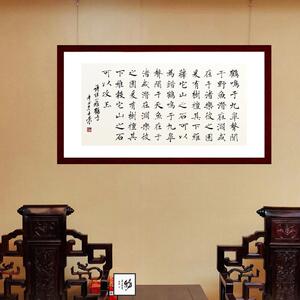 鶴鳴于九皋聲聞
于野魚潛在淵或
在于渚樂彼之園
爰有樹檀其下維
蘀它山之石可以
為錯鶴鳴于九皋
聲聞于天魚在于
渚或潛在淵樂彼
之園爰有樹檀其
下維榖它山之石
可以攻玉